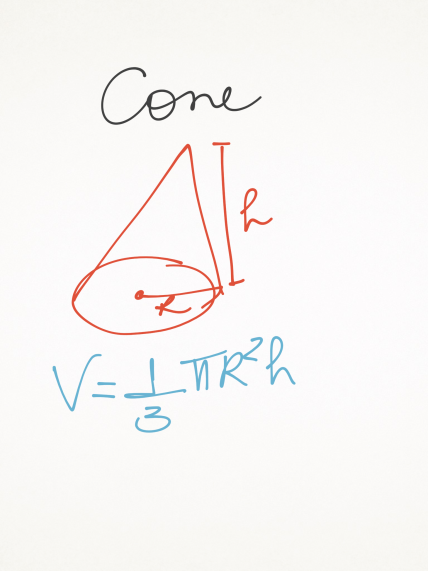 Cone
h
R
V = 1/3 πR²h